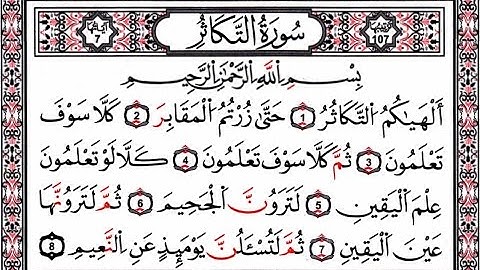 ترتيبها 107 سُورَةُ التَّكَاثُرِ آياتها 7
بِسْمِ اللَّهِ الرَّحْمَٰنِ الرَّحِيمِ
أَلْهَىٰكُمُ التَّكَاثُرُ 1 حَتَّىٰ زُرْتُمُ الْمَقَابِرَ 2 كَلَّا سَوْفَ
تَعْلَمُونَ 3 ثُمَّ كَلَّا سَوْفَ تَعْلَمُونَ 4 كَلَّا لَوْ تَعْلَمُونَ
عِلْمَ الْيَقِينِ 5 لَتَرَوُنَّ الْجَحِيمَ 6 ثُمَّ لَتَرَوُنَّهَا
عَيْنَ الْيَقِينِ 7 ثُمَّ لَتُسْـَٔلُنَّ يَوْمَئِذٍ عَنِ النَّعِيمِ 8